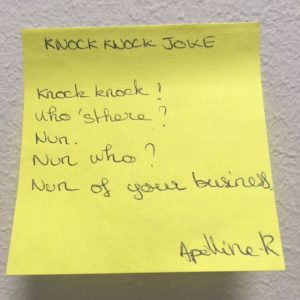 KNOCK KNOCK JOKE
Knock knock!
Who's there?
Nun.
Nun who?
Nun of your business.
Apolline R